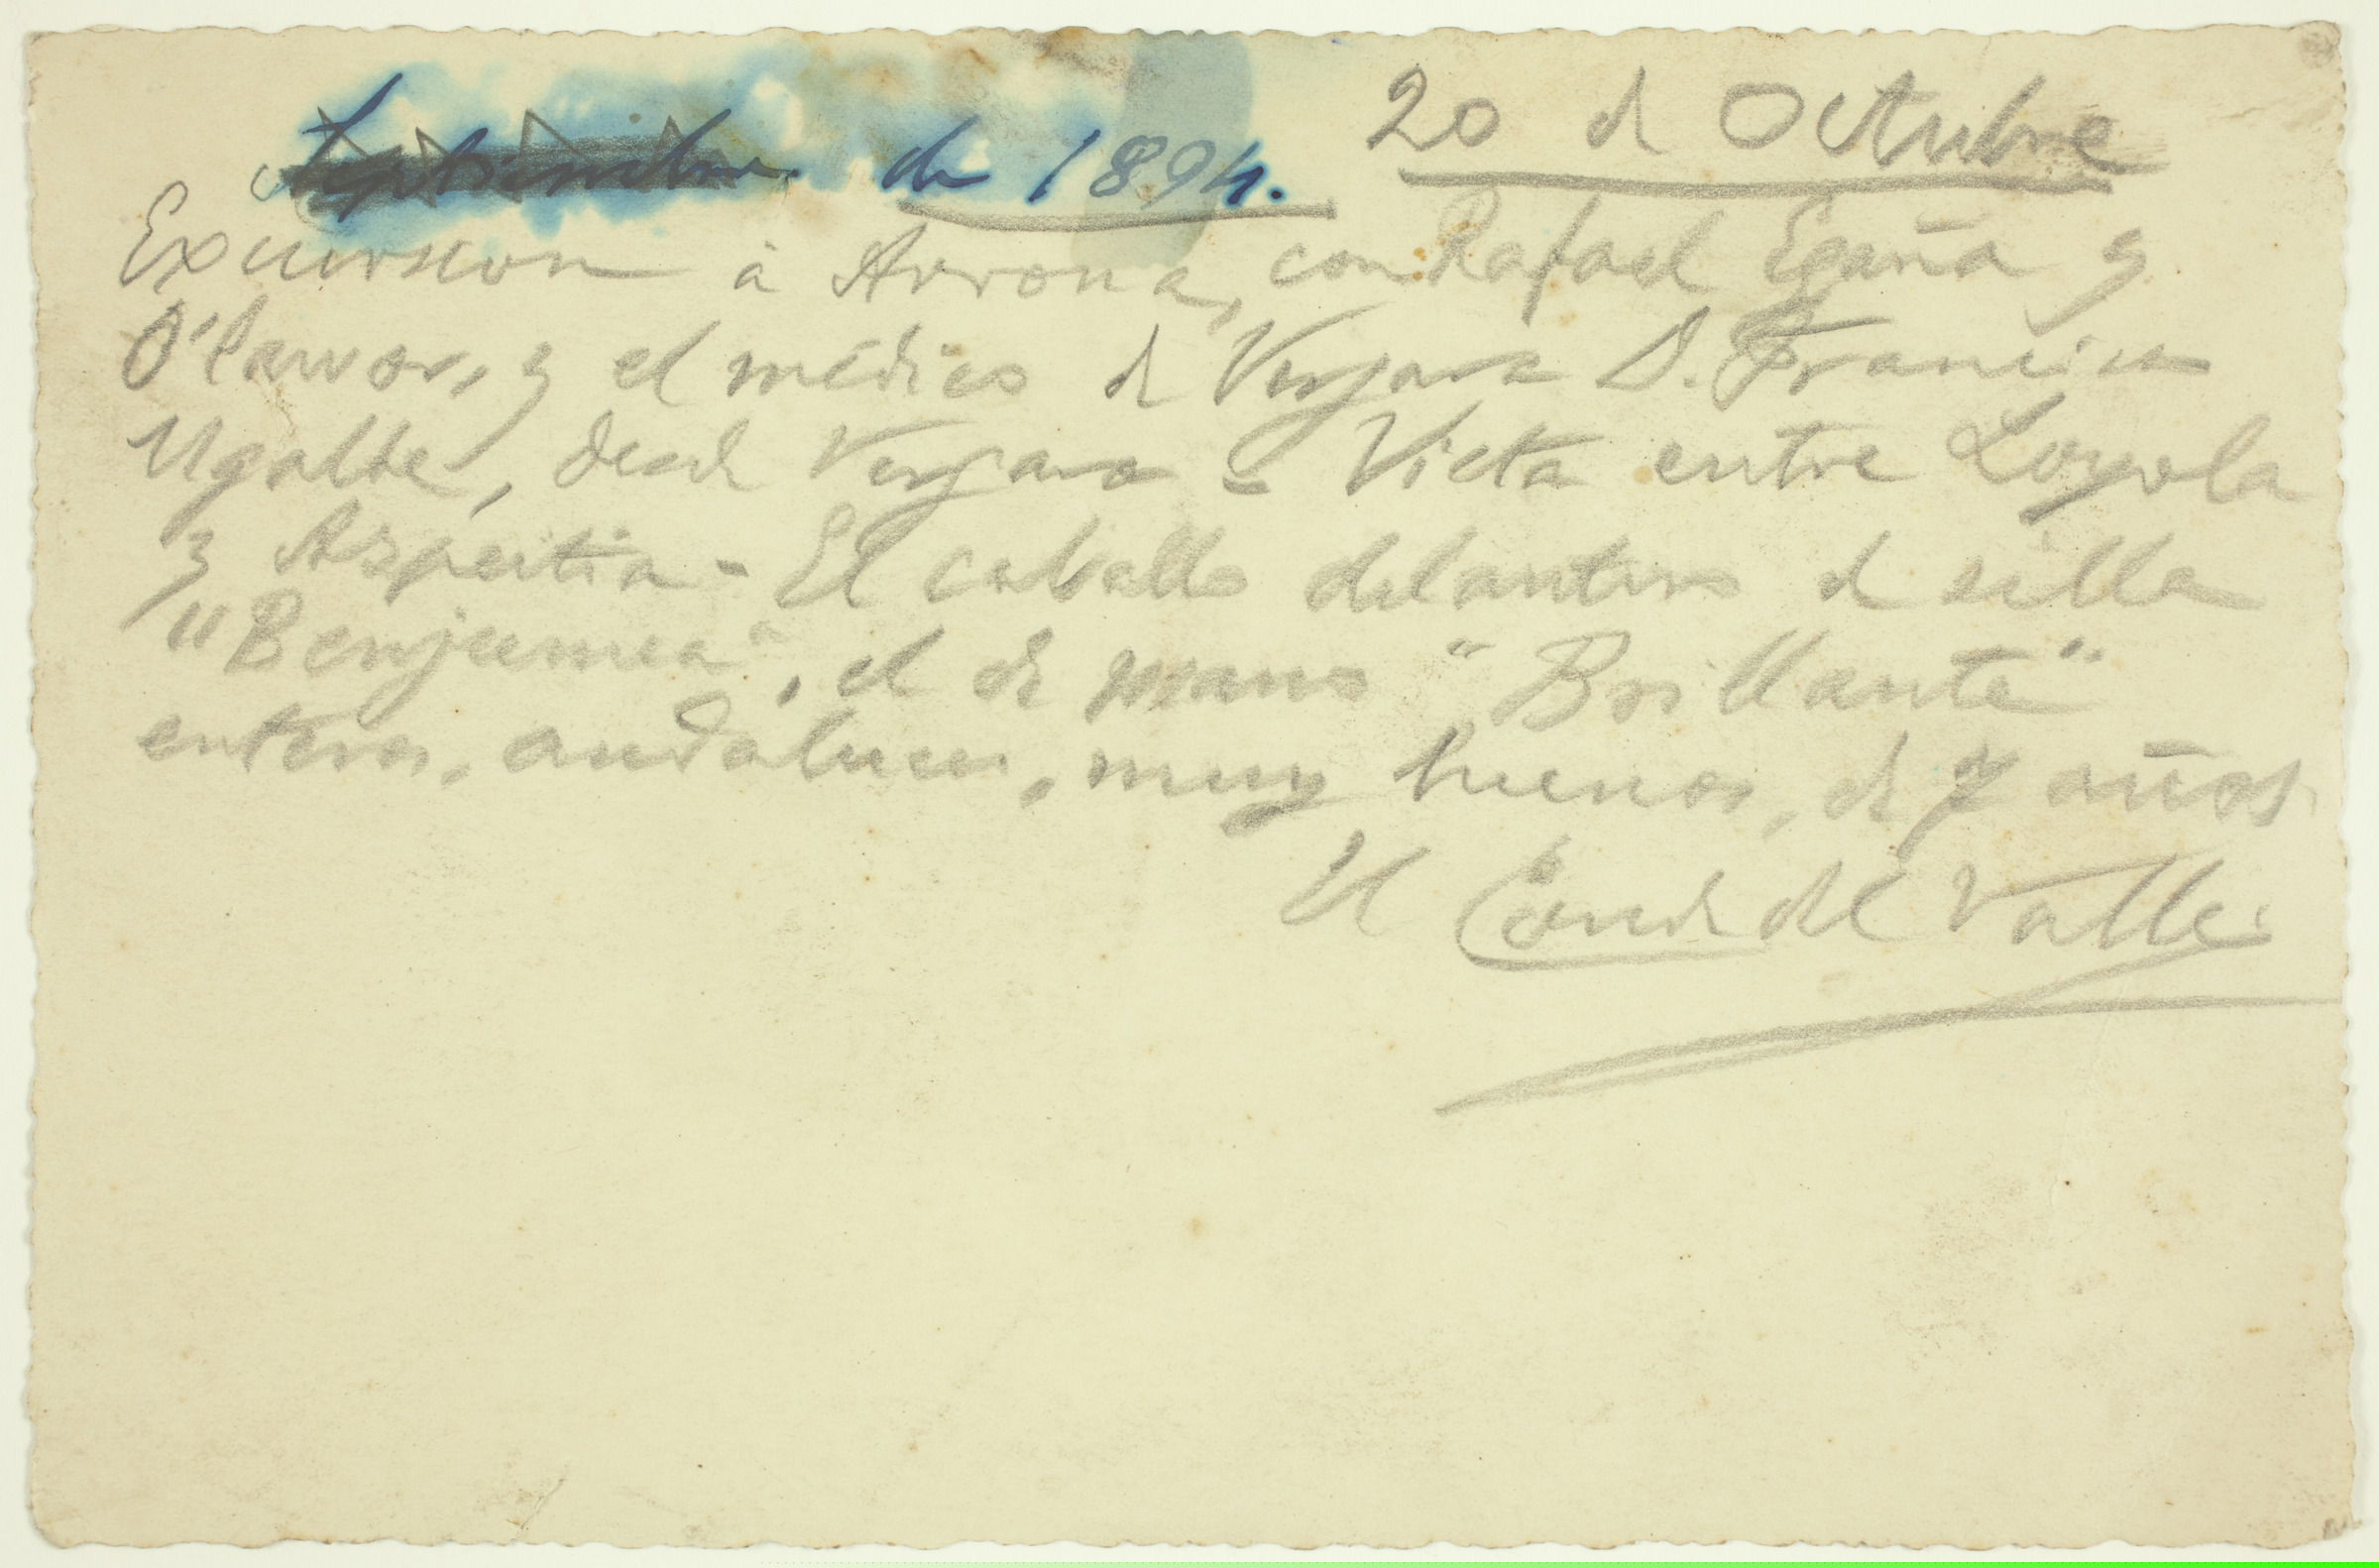 Septiembre de 1894. 20 de Octubre
Excursion á Arrona, con Rafael Egaña y
el médico de Vergara D. Francisco
Ugalde, desde Vergara = Vista entre Loyola
y Azpeitia - El caballo delantero de silla
"Benjumea", el de mano "Brillante"
enteros, andaluces, muy buenos, de 7 años.
El Conde del Valle